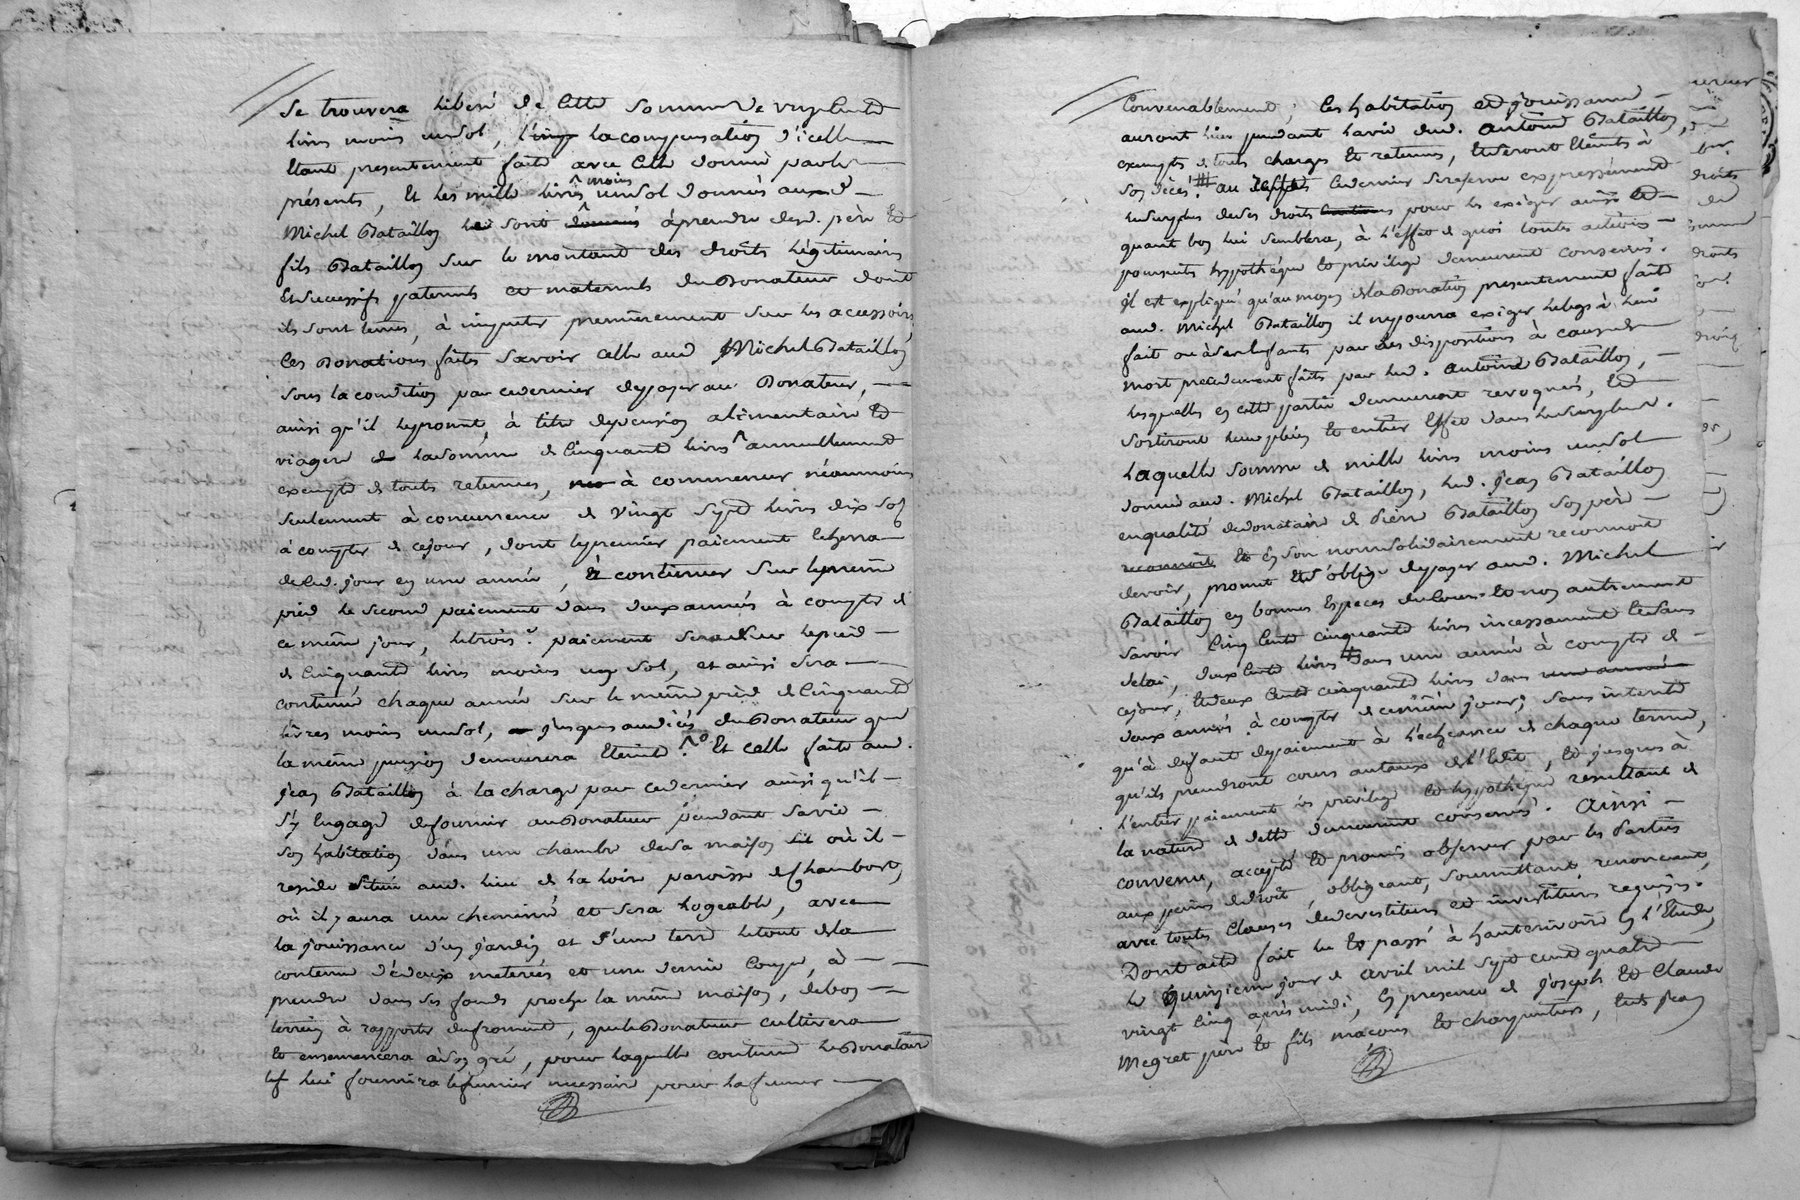 se trouvera liberé de cette somme de vingt cent
livres moins un sol, la compensation d'icelle
étant presentement faite avec celle donnée par les
présents, et les mille livres moins un sol donnés aud.
Michel Bataillon sont donnés à prendre desd. père et
fils Bataillon sur le montant des droits légitimaires
et successifs paternels et maternels du Donateur dont
ils sont tenus, à imputer premièrement sur les accessoires
Ces Donations faites savoir celle aud Michel Bataillon
sous la condition par ce dernier de payer au Donateur,
ainsi qu'il le promet, à titre de pension alimentaire et
viagere la somme de cinquante livres annuellement
exempte de toutes retenues, à commencer néanmoins
seulement à concurrence de vingt sept livres dix sols
à compter de ce jour, dont le premier paiement echerra
de ced. jour en une année, et continuer sur le même
pied le second paiement dans deux années à compter de
ce même jour, le trois.e paiement sera sur le pied
de cinquante livres moins un sol, et ainsi sera
continué chaque année sur le même pied de cinquante
livres moins un sol, jusques au décès du Donateur que
la même pension demeurera éteinte. Et celle faite aud.
Jean Bataillon à la charge par ce dernier ainsi qu'il
s'y engage de fournir au Donateur pendant sa vie
son habitation dans une chambre de sa maison où il
reside située aud. lieu de la Loire paroisse de Chambort,
où il y aura une cheminée et sera logeable, avec
la jouissance d'un jardin et d'une terre le tout de la
contenue de deux meterées et une demie coupe, à
prendre dans ses fonds proche la même maison, de bon
terrein à rapporter du froment, que le Donateur cultivera
et ensemencera à son gré, pour laquelle contenue le Donataire
lui fournira le fumier necessaire pour la fumer
Convenablement; les habitation et jouissance
auront lieu pendant la vie dud. Antoine Bataillon,
exempts de toutes charges et retenues, et seront éteints à
son décès. ce dernier se reserve expressément
le surplus de ses droits pour les exiger ainsi et
quant bon lui semblera, à l'effet de quoi toutes actions
poursuites hypothéque et privilege demeurent conservés.
Il est expliqué qu'au moyen de la Donation presentement faite
aud. Michel Bataillon il ne pourra exiger le legs à lui
fait ou à ses enfants par les dispositions à cause de
mort precedemment faites par led. Antoine Bataillon,
lesquelles en cette partie demeurent revoquées, et
sortiront leur plein et entier effet dans le surplus.
Laquelle somme de mille livres moins un sol
donnée aud. Michel Bataillon, led. Jean Bataillon
en qualité de donataire de Pierre Bataillon son père
reconnoit et en son nom solidairement reconnoit
devoir, promet et s'oblige de payer aud. Michel
Bataillon en bonnes Especes du Cours et non autrement
savoir cinq cent cinquante livres incessamment et sans
delai, deux cent livres dans une année à compter de
ce jour, et deux cent cinquante livres dans une année
deux années à compter de ce même jour; sans interets
qu'à defaut de paiement à l'echeance de chaque terme,
qu'ils prendront cours au taux de l'edit, et jusques à
l'entier paiement les privilege et hypothéque resultant de
la nature de dette demeurent conservés. Ainsi
convenu, accepté et promis observer par les Parties
aux peines de droit, obligeant, soumettant, renonçant,
avec toutes clauses de devestitures et investitures requises.
Dont acte fait lu et passé à hauterivoire en l'Etude,
le quinzieme jour de avril mil sept cent quatre
vingt cinq après midi; En presence de Joseph et Claude
Megret père et fils maçons et charpentiers, et Jean